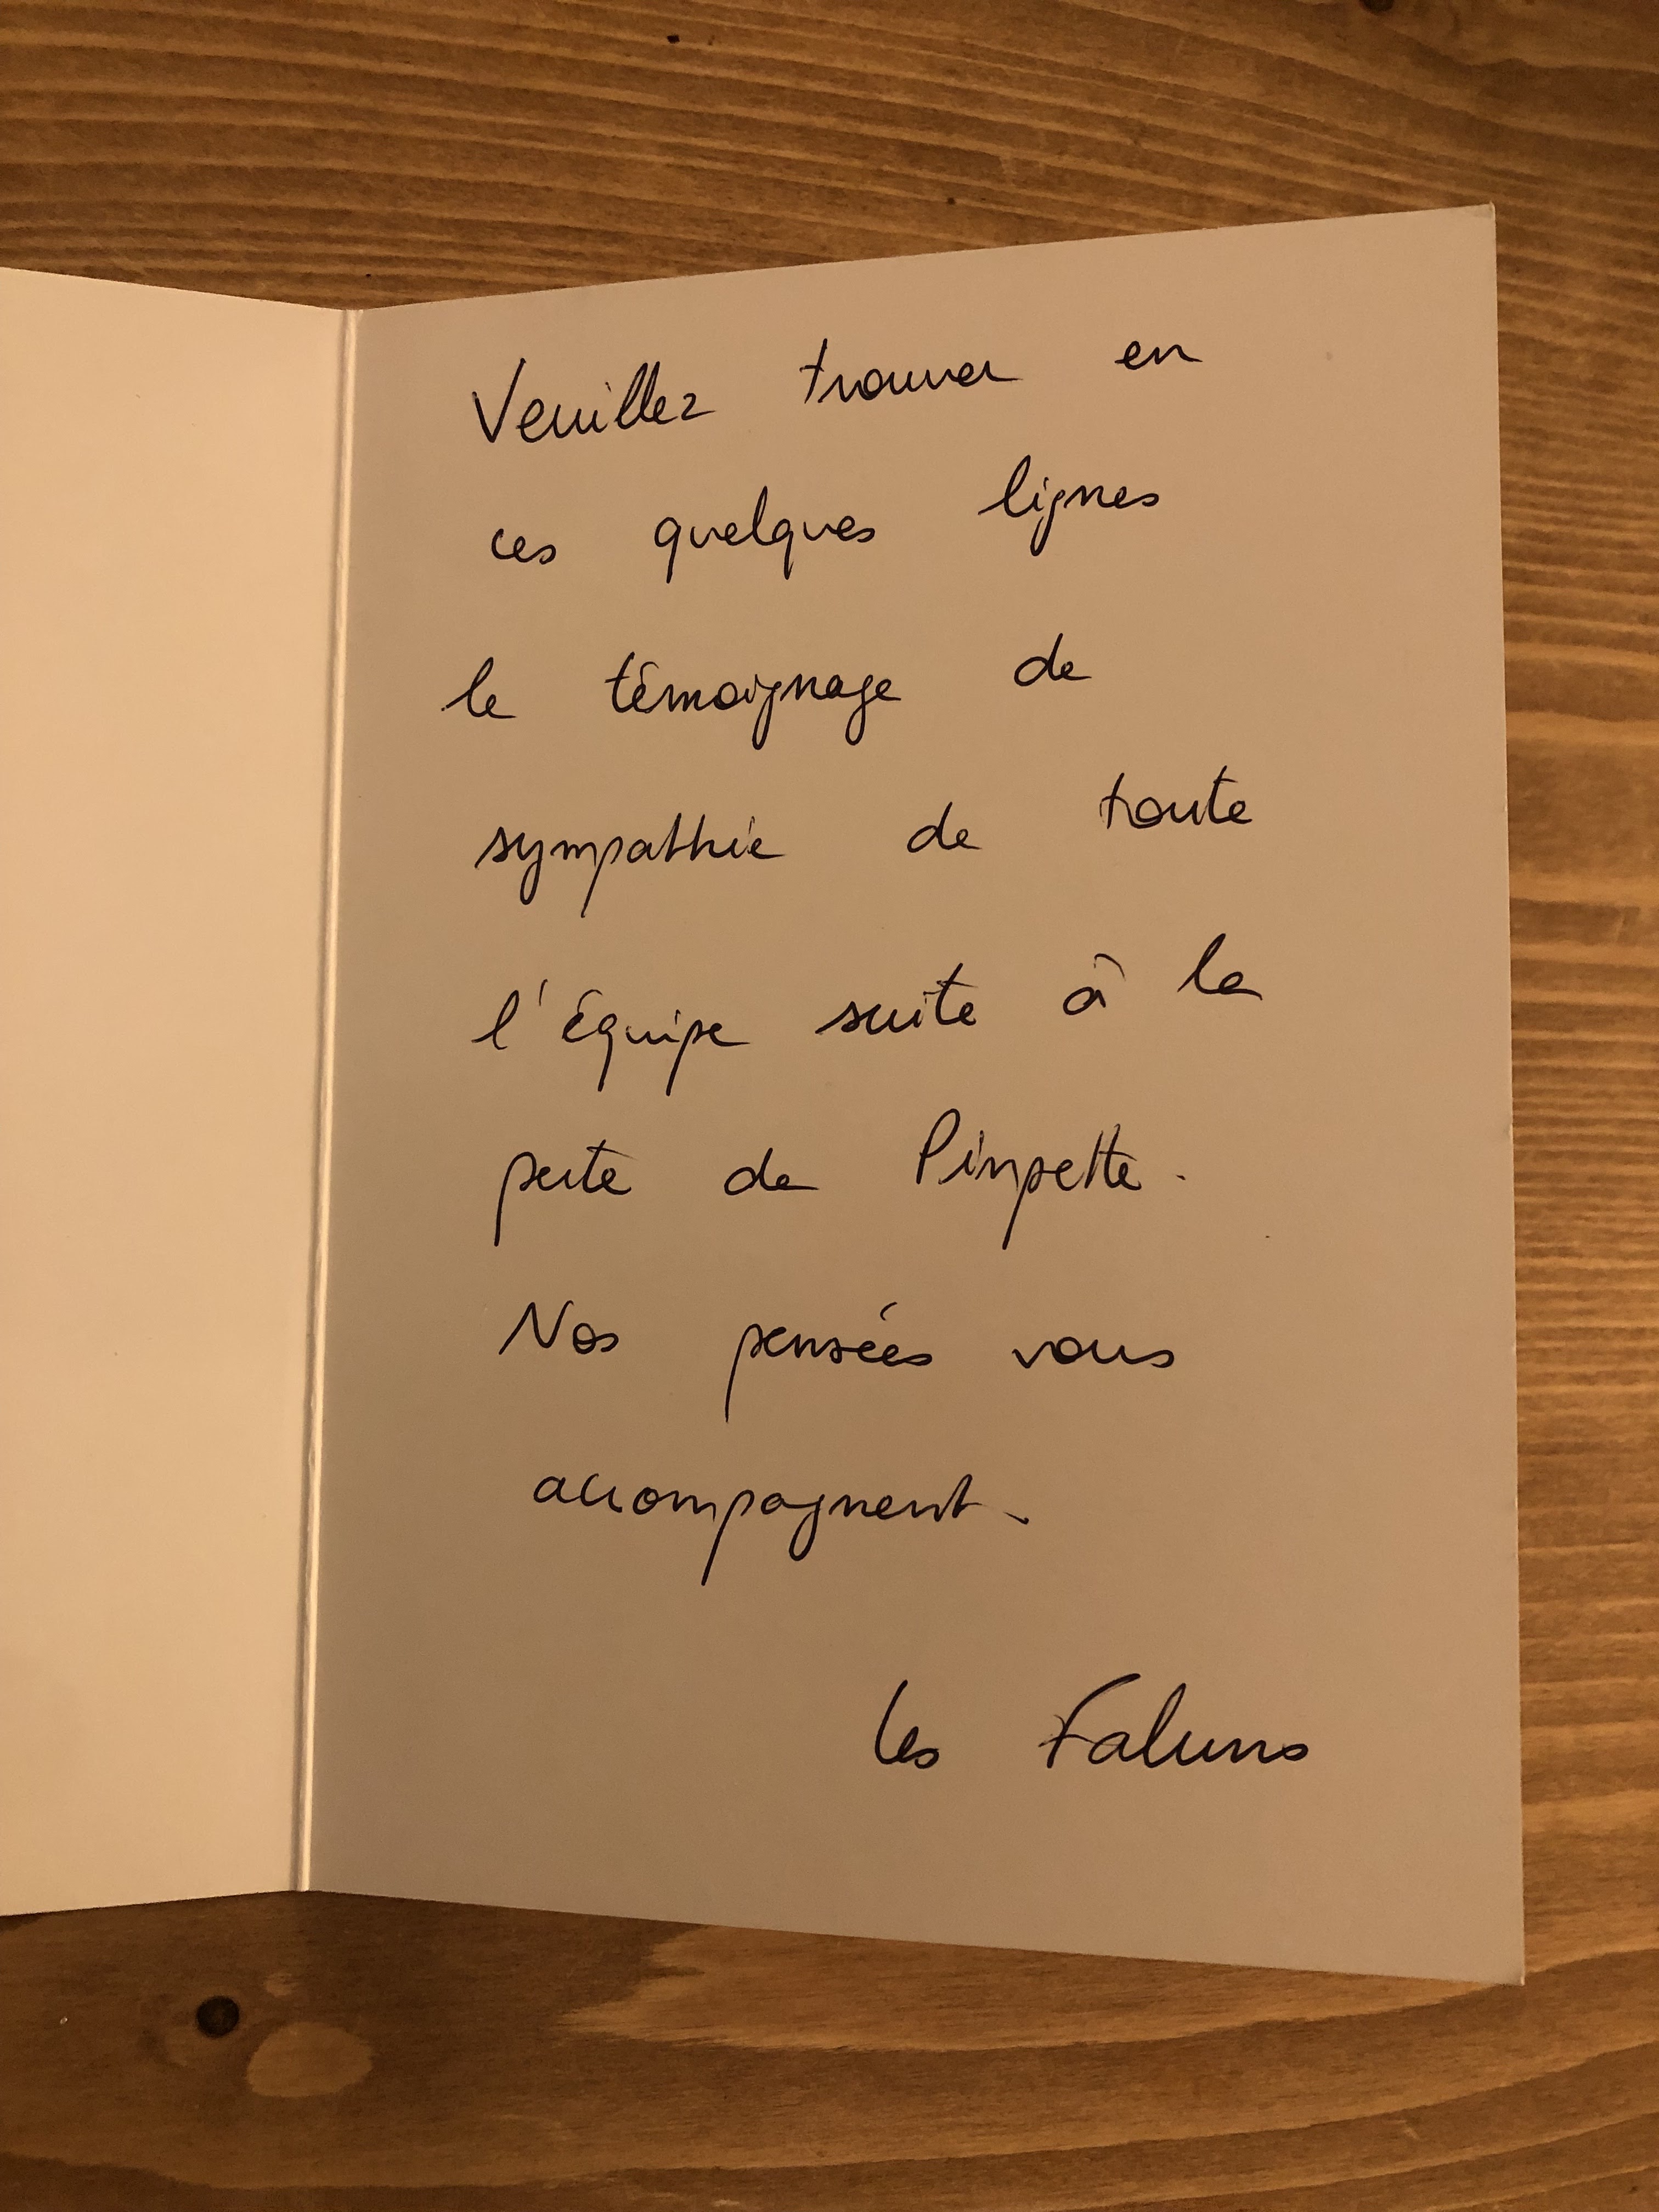 Veuillez trouver en
ces quelques lignes
le témoignage de
sympathie de toute
l'équipe suite à la
perte de Pinpette.
Nos pensées vous
accompagnent.
Les Faluns